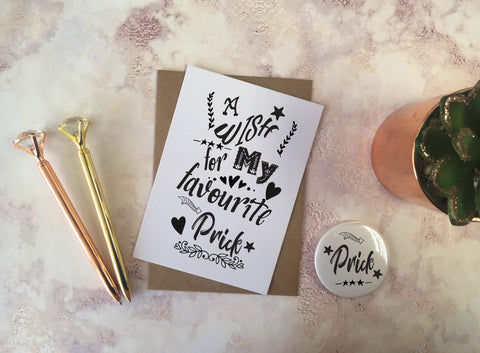 A
WISH
for My
favourite
Prick
Prick